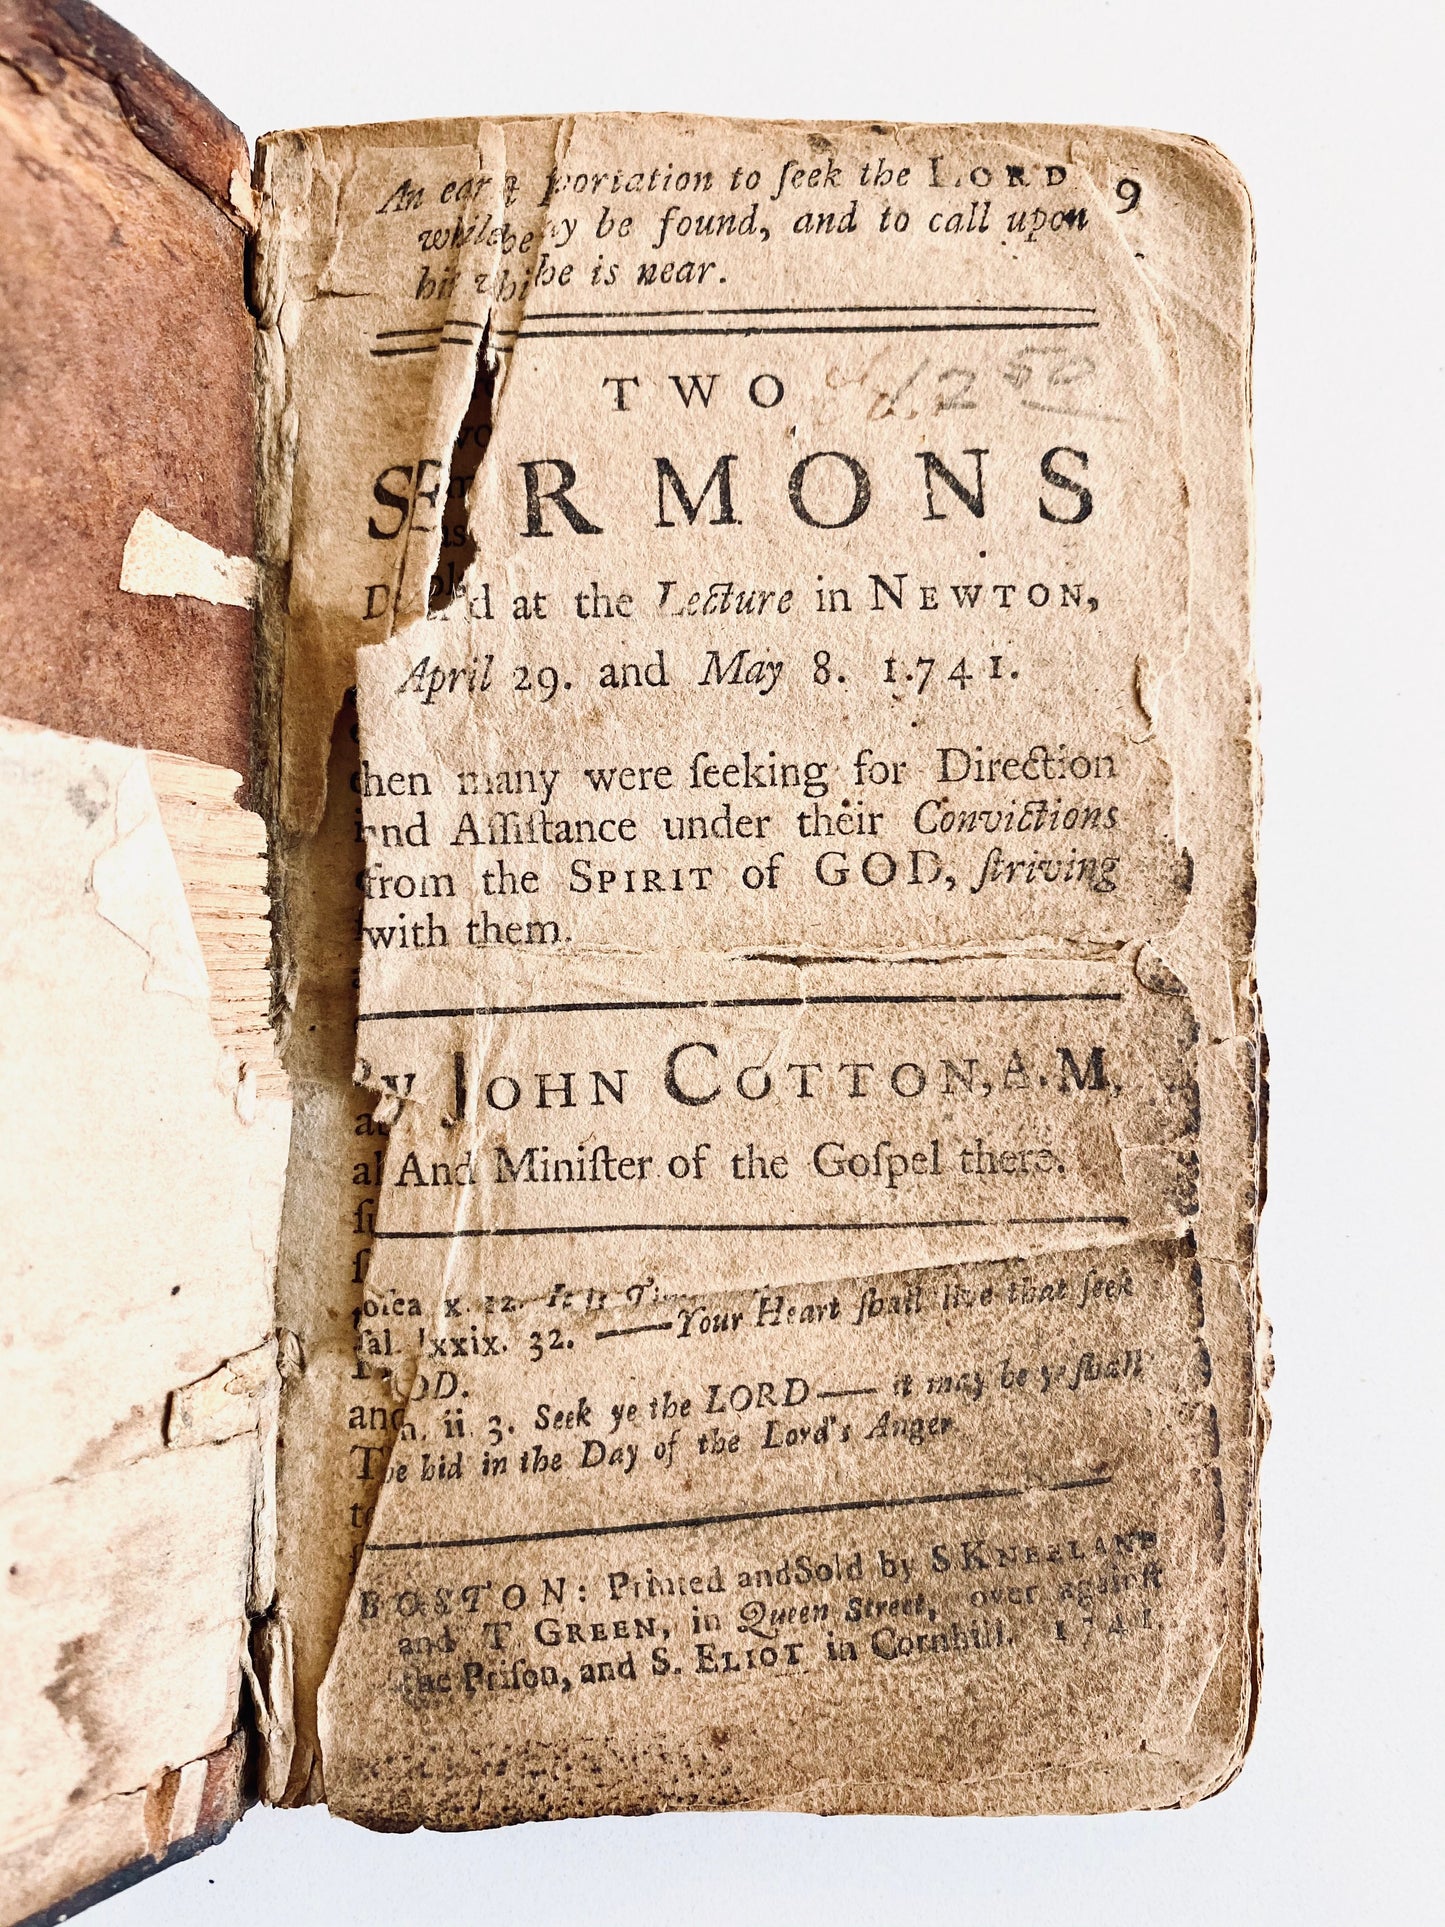 An portation to ſeek the LORD 9
be found, and to call upon
he is near.
TWO 12 50
SERMONS
at the Lecture in NEWTON,
April 29. and May 8. 1741.
many were ſeeking for Direction
and Aſſiſtance under their Convictions
from the SPIRIT of GOD, ſtriving
with them.
By JOHN COTTON, A.M,
And Miniſter of the Goſpel there.
x. 12. It is
lxxix. 32. —Your Heart ſhall live that ſeek
OD.
ii 3. Seek ye the LORD— it may be ye ſhall
be hid in the Day of the Lord's Anger
BOSTON: Printed and Sold by S KNEELAND
and T GREEN, in Queen Street, over againſt
the Priſon, and S. ELIOT in Cornhill. 1741.